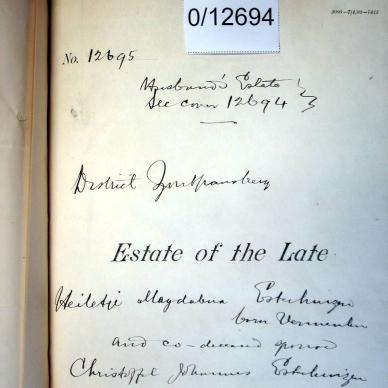 0/12694
3000—7/4/02—7412
No. 12695
Husband's Estate
See cover 12694
District Zoutpansberg
Estate of the Late
Heiletje Magdalena Esterhuizen
born Vermeulen
and co-deceased spouse
Christoffel Johannes Esterhuizen